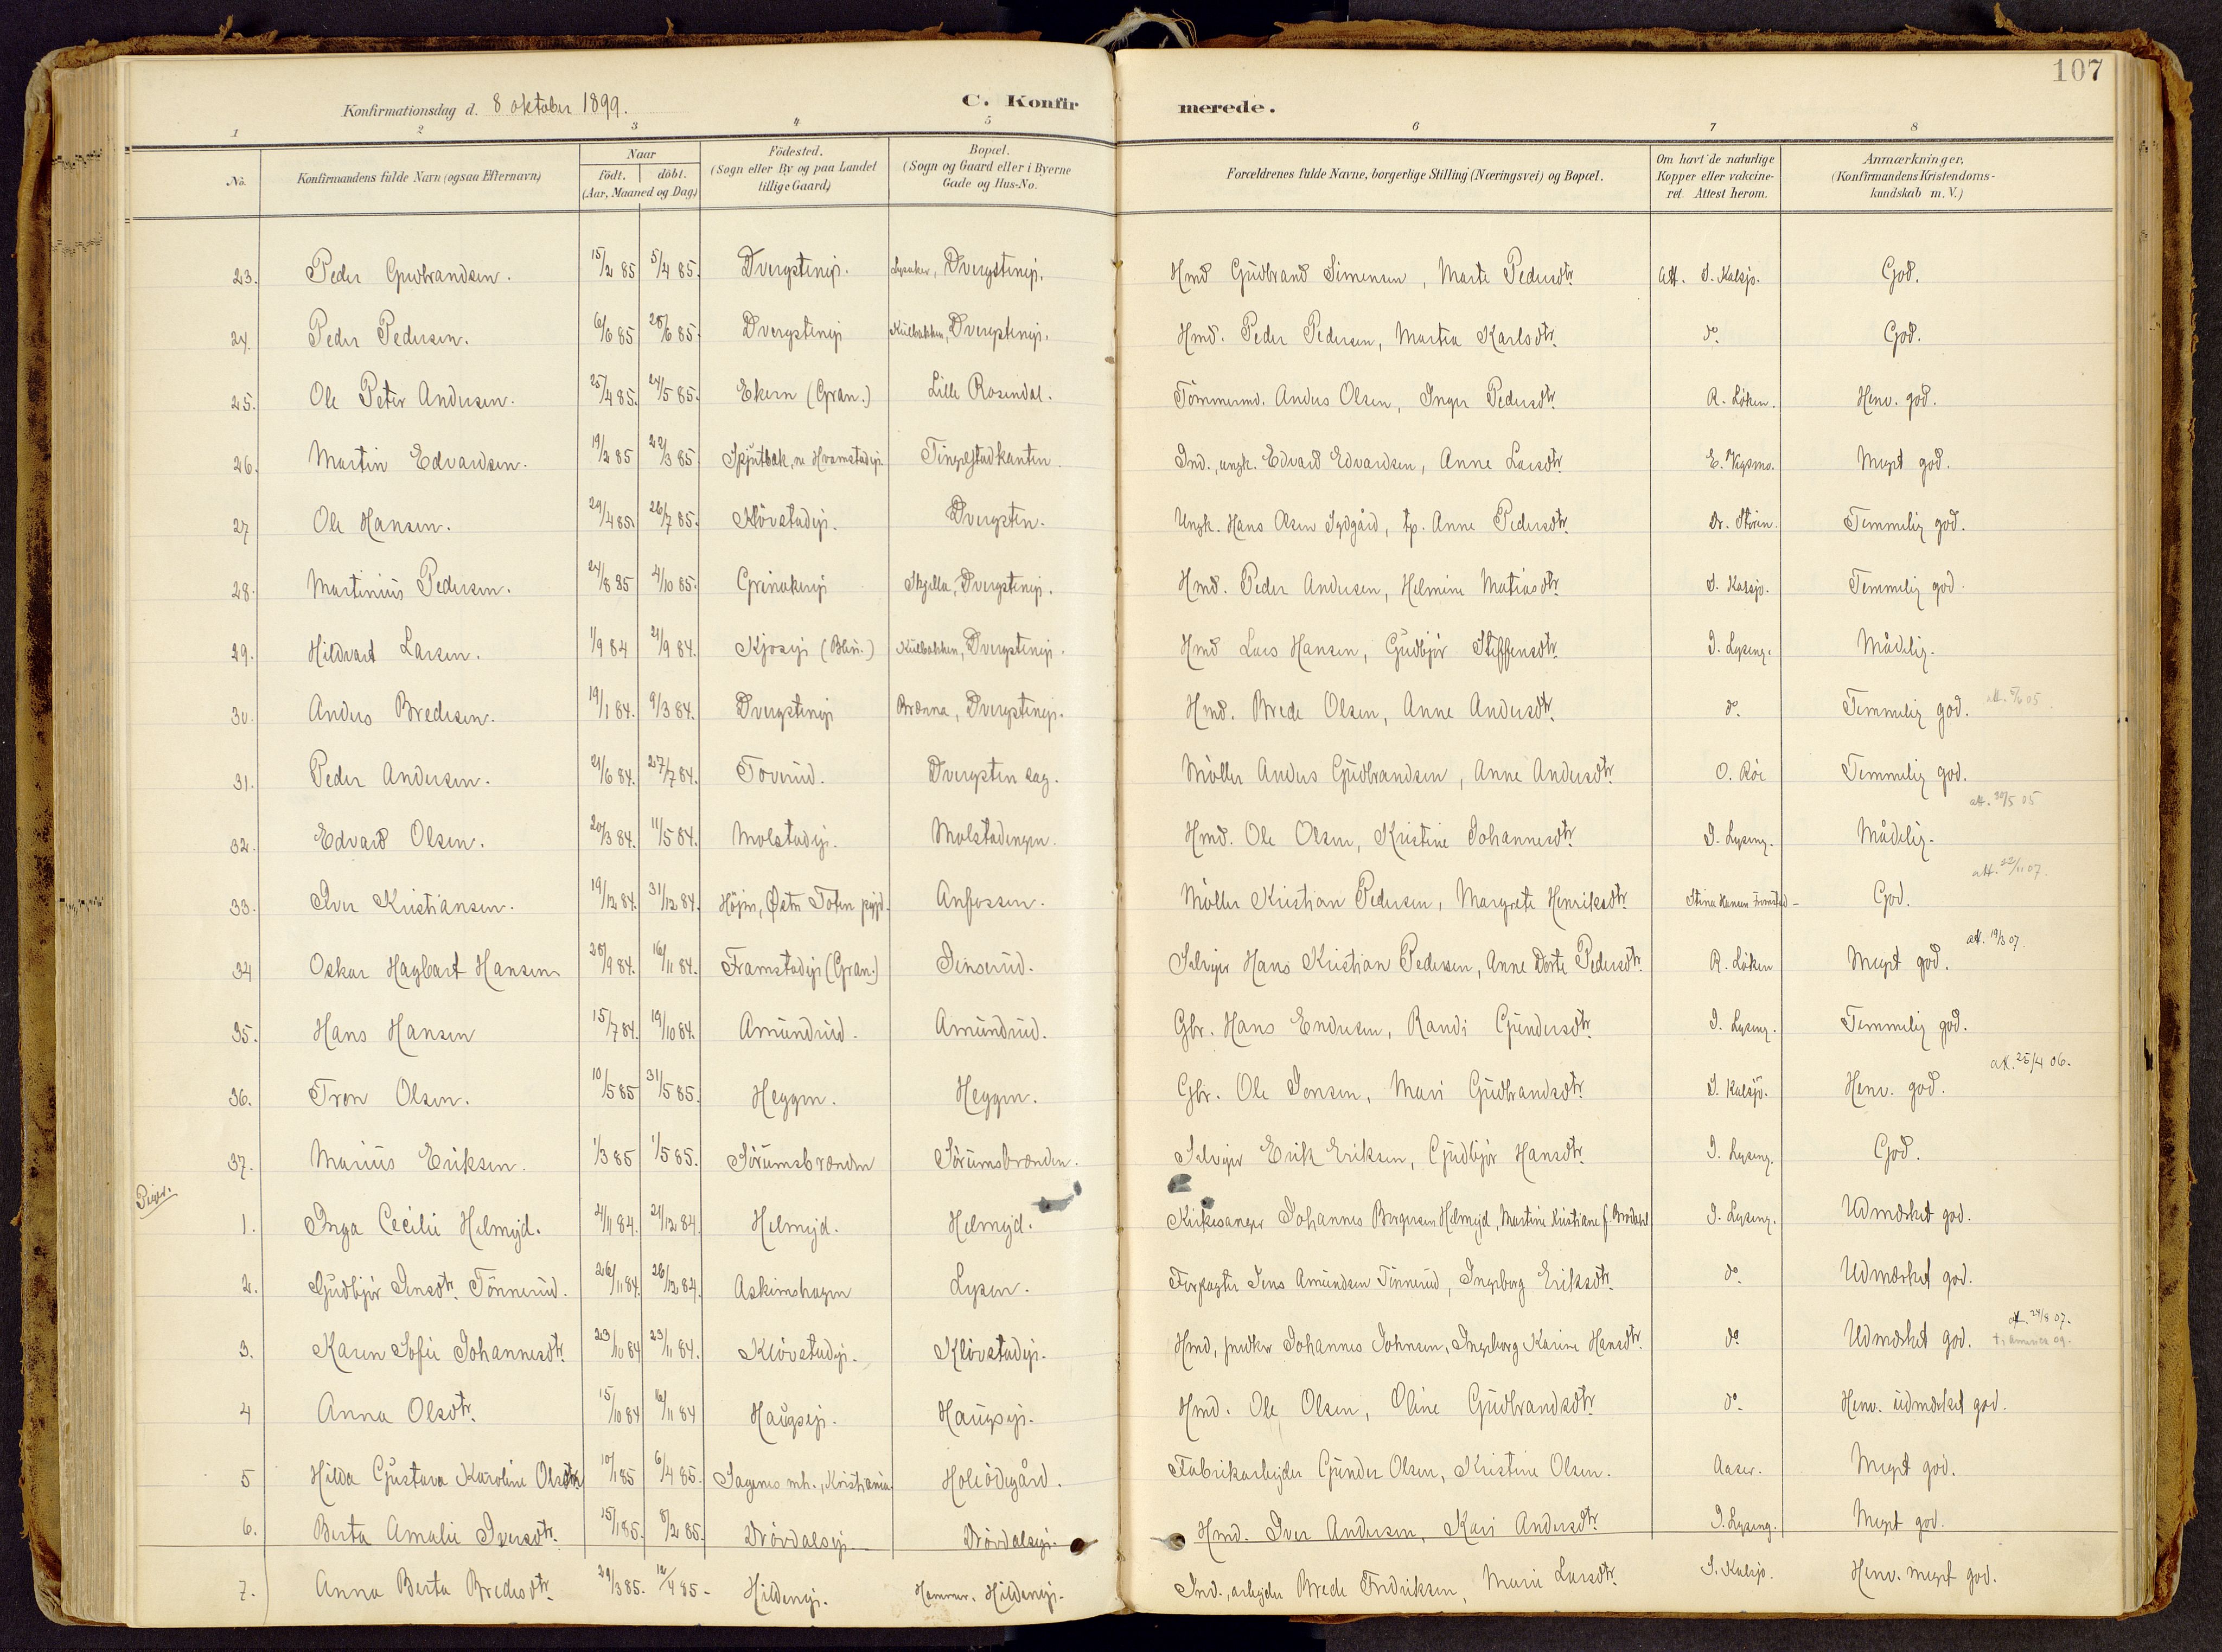 107
Konfirmationsdag d. 8 oktober 1899.
C. Konfirmerede.
1 2 3 4 5 6 7 8
No. Konfirmandens fulde Navn (ogsaa Efternavn) Naar födt. döbt. (Aar, Maaned og Dag) Födested. (Sogn eller By og paa Landet tillige Gaard) Bopæl. (Sogn og Gaard eller i Byerne Gade og Hus-No. Forældrenes fulde Navne, borgerlige Stilling (Næringsvei) og Bopæl. Om havt de naturlige Kopper eller vakcineret. Attest herom. Anmærkninger, (Konfirmandens Kristendomskundskab m. V.)
23. Peder Gudbrandsen. 15/2 85 5/4 85. Dvergstenejs. Dvergstenejs. Hmd Gudbrand Simensen, Marte Pedersdtr. Att. I. Kalsjo. God.
24. Peder Pedersen. 6/6 85 28/6 85. Dvergstenejs Kulbakken, Dvergstenejs. Hmd. Peder Pedersen, Martia Karlsdtr. do. God.
25. Ole Peter Andersen. 25/4 85. 24/5 85. Ekern (Gran.) Lille Rosendal. Tömmermd. Anders Olsen, Inger Pedersdtr. R. Löken. Henv. god.
26. Martin Edvardsen. 19/2 85 22/3 85. Tingelstadkanten. Ind., ungk. Edvard Edvardsen, Anne Larsdtr. Meget god.
27 Ole Hansen. 29/4 85. 26/7 85. Klövstadejs. Dvergsten. Ungk. Hans Olsen Sydgård, tp. Anne Pedersdtr. Dr. Stören. Temmelig god.
28. Martinius Pedersen. 24/8 85 4/10 85. Grinakerejs Skjella, Dvergstenejs. Hmd. Peder Andersen, Helmine Matiasdtr. I. Kalsjo. Temmelig god.
29. Hildvart Larsen. 1/9 84 21/9 84. Kjosejs Kulbakken, Dvergstenejs. Hmd Lars Hansen, Gudbjör Steffensdtr. I. Lyseng. Mådelig.
30. Anders Bredesen. 19/1 84. 9/3 84. Dvergstenejs Brænna, Dvergstenejs. Hmd. Brede Olsen, Anne Andersdtr. do. Temmelig god.
31. Peder Andersen. 21/6 84. 27/7 84. Toverud. Dvergsten sag. Möller Anders Gudbrandsen, Anne Andersdtr. O. Röe Temmelig god.
att. 30/5 05
32. Edvard Olsen. 20/3 84. 11/5 84. Molstadejs. Molstadengen. Hmd. Ole Olsen, Kristine Johannesdtr. I. Lyseng. Mådelig.
att. 22/11 07.
33. Iver Kristiansen. 19/12 84. 31/12 84. Østre Toten Amfossen. Möller Kristian Pedersen, Margrete Henriksdtr. God.
att. 19/3 07.
34 Oskar Hagbart Hansen 28/9 84. 16/11 84. Framstadejs (Gran.) Jenserud. Selveger Hans Kristian Pedersen, Anne Dorte Pedersdtr. R. Löken Meget god.
35. Hans Hansen 15/7 84. 19/10 84. Amundrud. Amundrud. Gbr. Hans Endresen, Randi Gundersdtr. I. Lyseng. Temmelig god.
att. 25/4 06.
36. Tron Olsen. 10/5 85 31/5 85. Heggen. Heggen. Gbr. Ole Jensen, Mari Gudbrandsdtr. I. Kalsjö. Henv. god.
37. Marius Eriksen. 1/3 85 1/5 85. Sörumsbrænden Sörumsbrænden. Selveger Erik Eriksen, Gudbjör Hansdtr. I. Lyseng. God.
Piger.
1. Inga Cecilie Helmejd. 2/11 84. 21/12 84. Helmejd. Helmejd. Kirkesanger Johannes Borgersen Helmejd, Martine Kristiane f. I. Lyseng. Udmærket god.
2. Gudbjör Jensdtr. Tönnerud. 26/11 84. 26/12 84. Askimshagen Lysen. Forpagter Jens Amundsen Tönnerud, Ingeborg Eriksdtr. do. Udmærket god.
att. 24/8 07.
3. Karen Sofie Johannesdtr. 23/10 84 23/11 84. Klövstadejs. Klövstadejs. Hmd, snedker Johannes Johnsen, Ingeborg Karine Hansdtr. do Udmærket god. t. Amerika 09.
4 Anna Olsdtr. 15/10 84 16/11 84 Haugsejs. Haugsejs. Hmd. Ole Olsen, Oline Gudbrandsdtr. do. Henv. udmærket god.
5 Hilda Gustava Karoline Olsdtr. 10/1 85 6/4 85. Sagenes mh., Kristiania Holeödegård. Fabrikarbejder Gunder Olsen, Kristine Olsen. Aaser. Meget god.
6. Berta Amalie Iversdtr. 15/1 85. 8/2 85. Drövdalsejs. Drövdalsejs. Hmd. Iver Andersen, Kari Andersdtr. I. Lyseng. Meget god.
7. Anna Berta Bredesdtr. 29/3 85. 12/4 85. Hildenejs. Hammer. Hildenejs. Ind., arbejder Brede Fredriksen, Marie Larsdtr. I. Kalsjo. Henv. meget god.